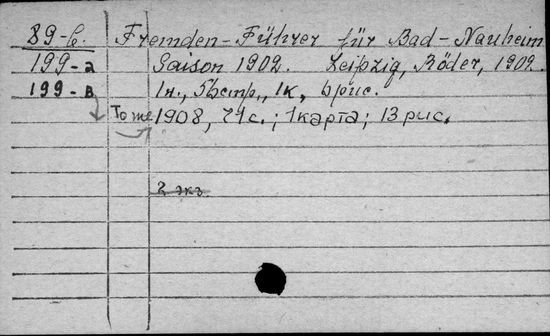 89-б. Fremden-Führer für Bad-Nauheim
199-а Saison 1902. Leipzig, Röder, 1902.
199-в 1н., 1к, 6 рис.
То же 1908, 71 с.; 1 карта; 13 рис.
2 экз.